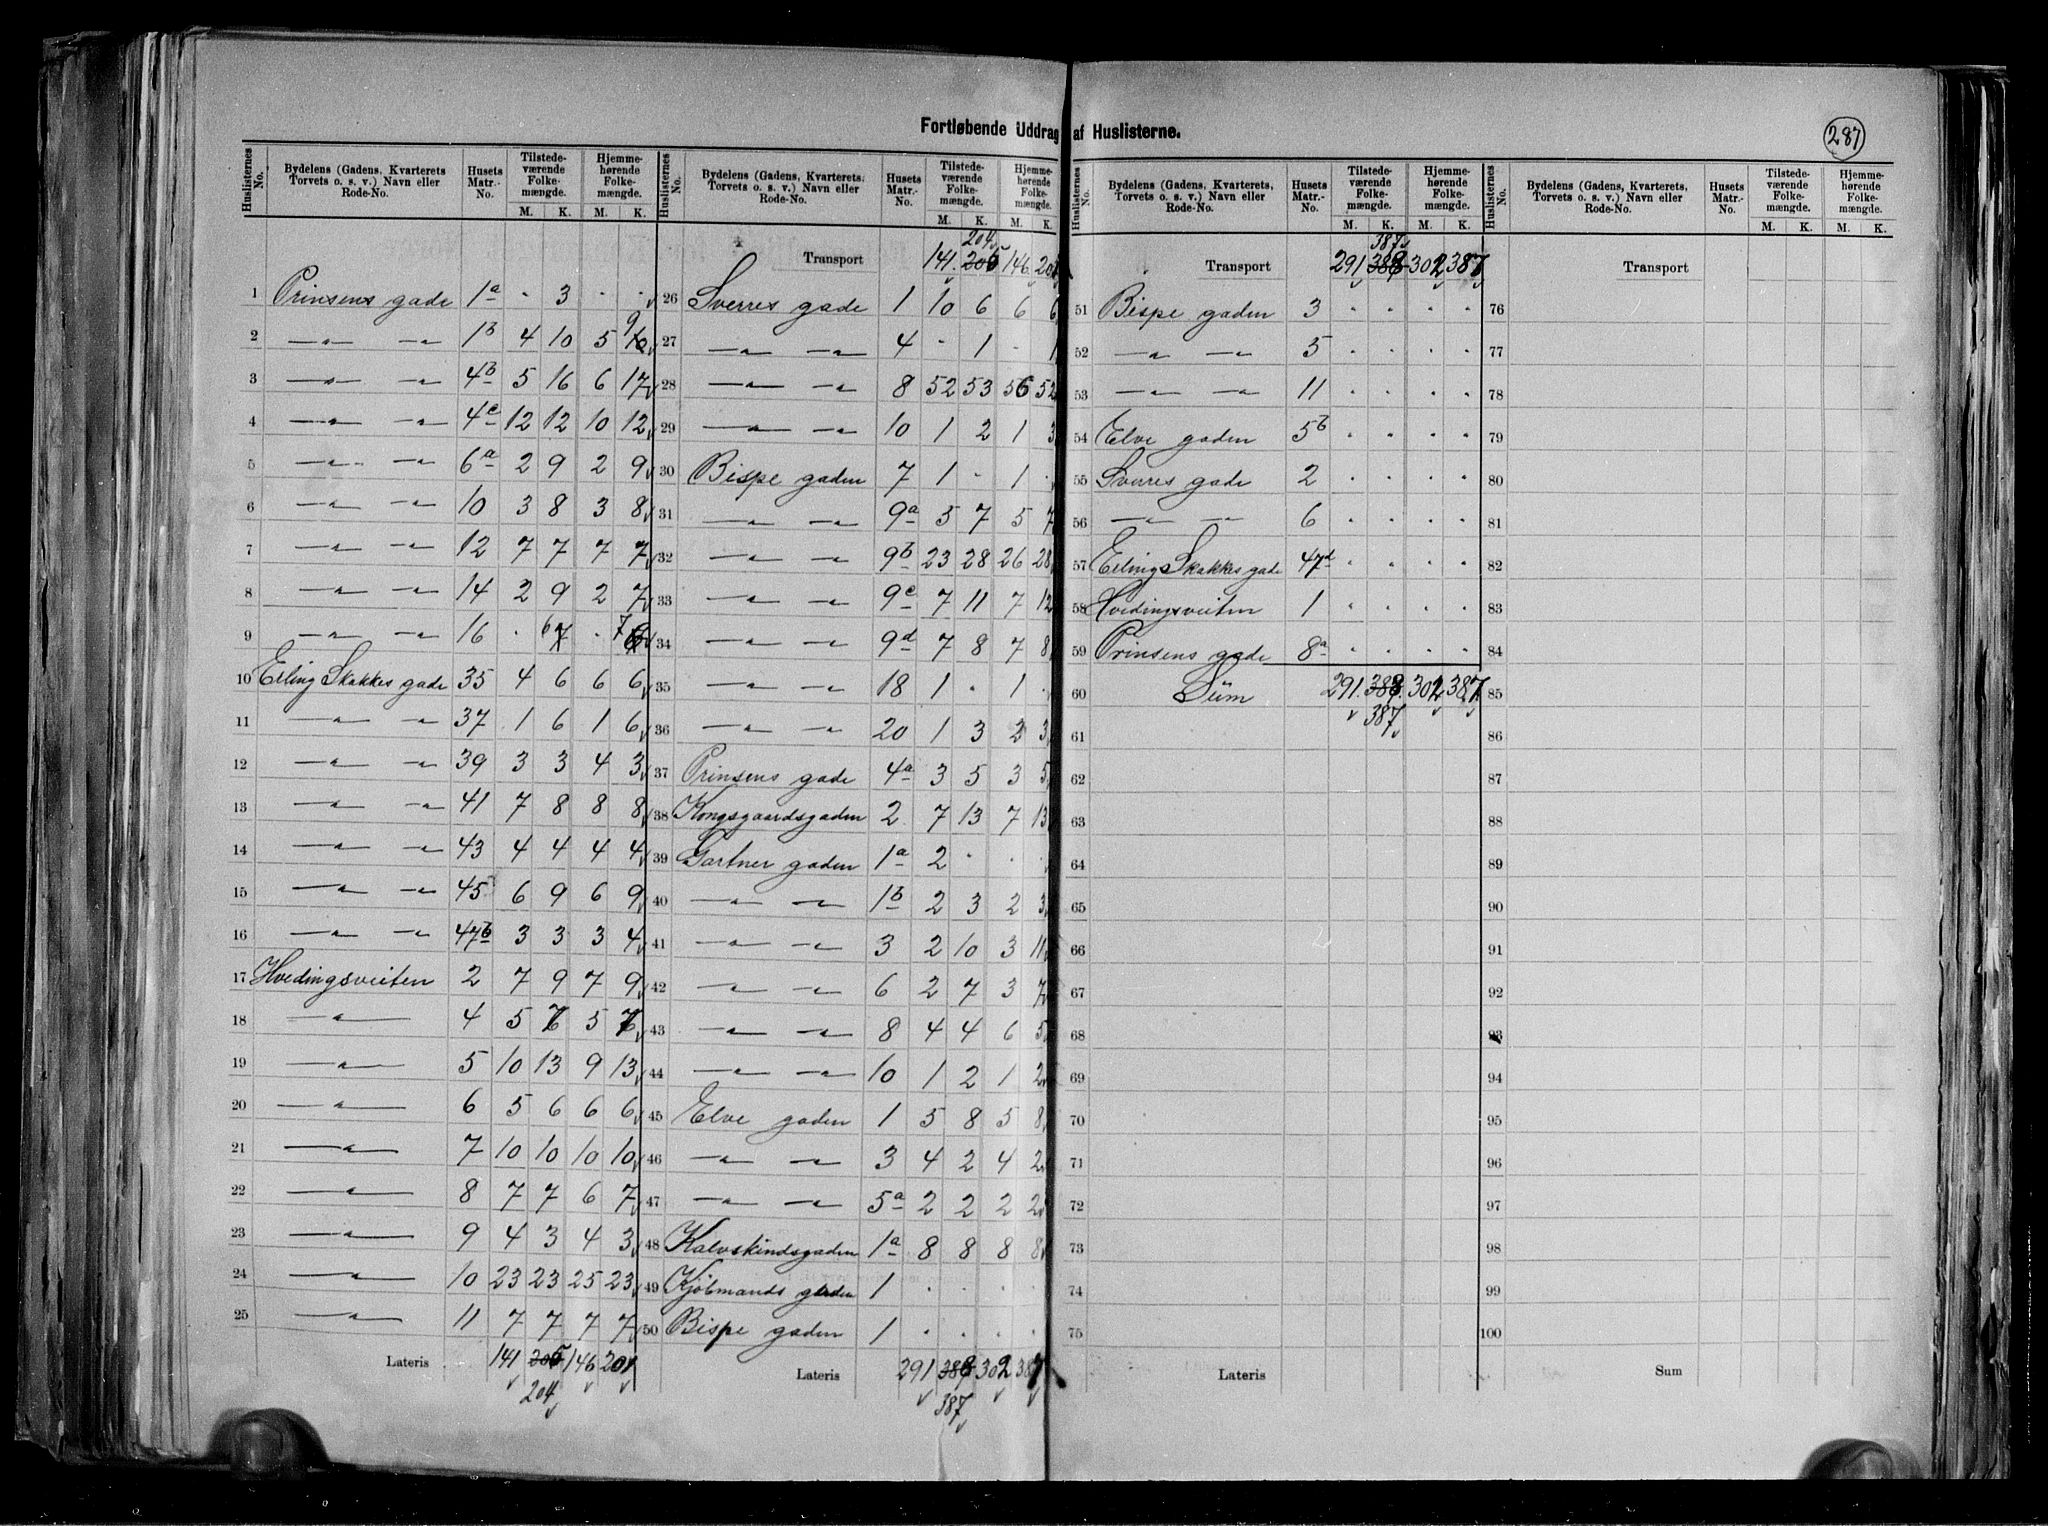 Fortløbende Uddrag af Huslisterne.
287
Huslisternes No. Bydelens (Gadens, Kvarterets Torvets o. s. v.) Navn eller Rode-No. Husets Matr.-No. Tilstedeværende Folkemængde. M. K. Hjemmehørende Folkemængde. M. K.
1 Prinsens gade 1a · 3 · ·
2 —„— 1b 4 10 5 9
3 —„— 4b 5 16 6 17
4 —„— 4c 12 12 10 12
5 —„— 6a 2 9 2 9
6 —„— 10 3 8 3 8
7 —„— 12 7 7 7 7
8 —„— 14 2 9 2 7
9 —„— 16 · 6 7 · 7 6
10 Erling Skakkes gade 35 4 6 6 6
11 —„— 37 1 6 1 6
12 —„— 39 3 3 4 3
13 —„— 41 7 8 8 8
14 —„— 43 4 4 4 4
15 —„— 45 6 9 6 9
16 —„— 47b 3 3 3 4
17 Hvedingsveiten 2 7 9 7 9
18 —„— 4 5 5
19 —„— 5 10 13 9 13
20 —„— 6 5 6 6 6
21 —„— 7 10 10 10 10
22 —„— 8 7 7 6 7
23 —„— 9 4 3 4 3
24 —„— 10 23 23 25 23
25 —„— 11 7 7 7 7
Lateris 141 205 146 201
204
Huslisternes No. Bydelens (Gadens, Kvarterets, Torvets o. s. v.) Navn eller Rode-No. Husets Matr.-No. Tilstedeværende Folkemængde. M. K. Hjemmehørende Folkemængde. M. K.
204
Transport 141 205 146 201
26 Sverres gade 1 10 6 6 6
27 —„— 4 · 1 · 1
28 —„— 8 52 53 56 52
29 —„— 10 1 2 1 3
30 Bispe gaden 7 1 · 1 ·
31 —„— 9a 5 7 5 7
32 —„— 9b 23 28 26 28
33 —„— 9c 7 11 7 12
34 —„— 9d 7 8 7 8
35 —„— 18 1 · 1 ·
36 —„— 20 1 3 2 3
37 Prinsens gade 4a 3 5 3 5
38 Kongsgaardsgaden 2 7 13 7 13
39 Gartner gaden 1a 2 · · ·
40 —„— 1b 2 3 2 3
41 —„— 3 2 10 3 11
42 —„— 6 2 7 3 7
43 —„— 8 4 4 6 5
44 —„— 10 1 2 1 2
45 Elve gaden 1 5 8 5 8
46 —„— 3 4 2 4 2
47 —„— 5a 2 2 2 2
48 Kalvskindsgaden 1a 8 8 8 8
49 Kjøbmands gaden 1 · · · ·
50 Bispe gaden 1 · · · ·
Lateris 291 388 302 387
387
Huslisternes No. Bydelens (Gadens, Kvarterets, Torvets o. s. v.) Navn eller Rode-No. Husets Matr.-No. Tilstedeværende Folkemængde. M. K. Hjemmehørende Folkemængde. M. K.
387
Transport 291 388 302 387
51 Bispe gaden 3 · · · ·
52 —„— 5 · · · ·
53 —„— 11 · · · ·
54 Elve gaden 5b · · · ·
55 Sverres gade 2 · · · ·
56 —„— 6 · · · ·
57 Erling Skakkes gade 47d · · · ·
58 Hvedingsveiten 1 · · · ·
59 Prinsens gade 8a · · · ·
60 Süm 291 388 302 387
387
61
62
63
64
65
66
67
68
69
70
71
72
73
74
75
Lateris
Huslisternes No. Bydelens (Gadens, Kvarterets, Torvets o. s. v.) Navn eller Rode-No. Husets Matr.-No. Tilstedeværende Folkemængde. M. K. Hjemmehørende Folkemængde. M. K.
Transport
76
77
78
79
80
81
82
83
84
85
86
87
88
89
90
91
92
93
94
95
96
97
98
99
100
Sum